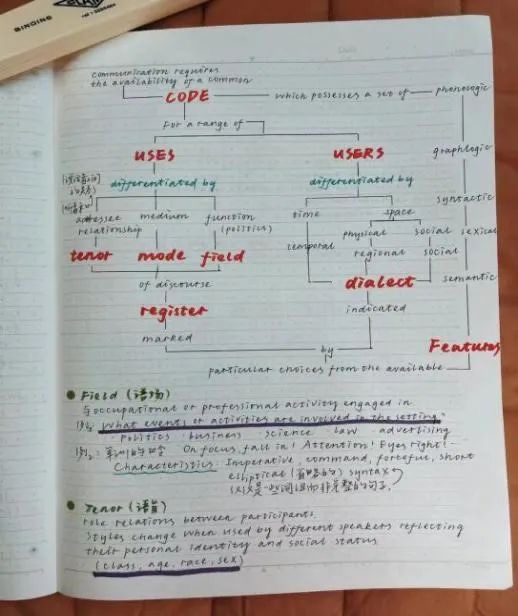 BINDING
communication requires
the availability of a common
CODE which possesses a set of phonologic
for a range of
graphlogic
USES USERS
differentiated by differentiated by
syntactic
addressee medium function time space
relationship (politics) physical social lexical
temporal regional social
tenor mode field
of discourse dialect semantic
register indicated
marked
by Features
particular choices from the available
Field (语场)
与occupational or professional activity engaged in
例: What events or activities are involved in the setting?
politics business science law advertising
例: 军训的口令 On focus, fall in! Attention! Eyes right!
Characteristics: Imperative, command, forceful, short
elliptical (省略的) syntax
(仅仅是一些词组而非完整的句子)
Tenor (语旨)
role relations between participants.
Styles change when used by different speakers reflecting
their personal identity and social status
(class, age, race, sex)